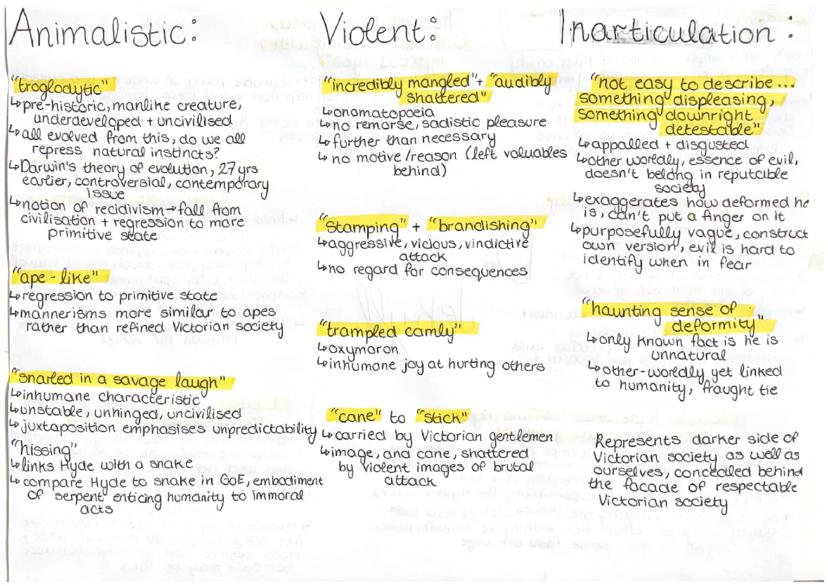 Animalistic:
"troglodytic"
↳pre-historic, manlike creature,
underdeveloped + uncivilised
↳all evolved from this, do we all
repress natural instincts?
↳Darwin's theory of evolution, 27yrs
earlier, controversial, contemporary
issue
↳notion of recidivism→fall from
civilisation + regression to more
primitive state
"ape-like"
↳regression to primitive state
↳mannerisms more similar to apes
rather than refined Victorian society
"snarled in a savage laugh"
↳inhumane characteristic
↳unstable, unhinged, uncivilised
↳juxtaposition emphasises unpredictability
"hissing"
↳links Hyde with a snake
↳compare Hyde to snake in GoE, embodiment
of serpent enticing humanity to immoral
acts
Violent:
"incredibly mangled" + "audibly
shattered"
↳onomatopoeia
↳no remorse, sadistic pleasure
↳further than necessary
↳no motive/reason (left valuables
behind)
"stamping" + "brandishing"
↳aggressive, vicious, vindictive
attack
↳no regard for consequences
"trampled camly"
↳oxymoron
↳inhumane joy at hurting others
"cane" to "stick"
↳carried by Victorian gentlemen
↳image, and cane, shattered
by violent images of brutal
attack
Inarticulation:
"not easy to describe...
something displeasing,
something downright
detestable"
↳appalled + disgusted
↳other worldly, essence of evil,
doesn't belong in reputable
society
↳exaggerates how deformed he
is, can't put a finger on it
↳purposefully vague, construct
own version, evil is hard to
identify when in fear
"haunting sense of
deformity"
↳only known fact is he is
unnatural
↳other-worldly yet linked
to humanity, fraught tie
Represents darker side of
Victorian society as well as
ourselves, concealed behind
the facade of respectable
Victorian society